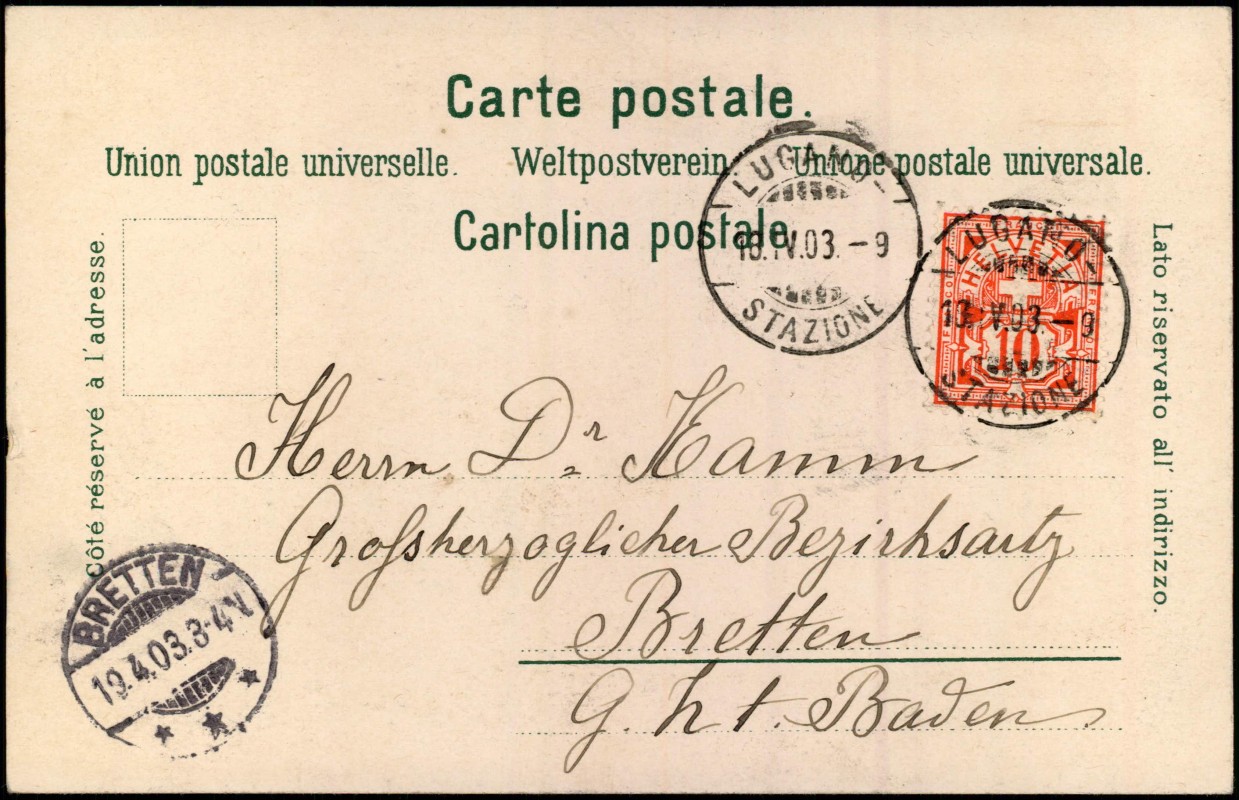 Carte postale.
Union postale universelle. Weltpostverein. Unione postale universale.
Cartolina postale.
Côté réservé à l'adresse.
Lato riservato all' indirizzo.
LUGANO-
18.IV.03.-9
STAZIONE
HELVETIA
FRANCO FRANCO
10
LUGANO-
18.IV.03.-9
STAZIONE
Herrn Dr Kamm
Großherzoglicher Bezirksartz
Bretten
G. h t. Baden
BRETTEN
19.4.03.3-4N